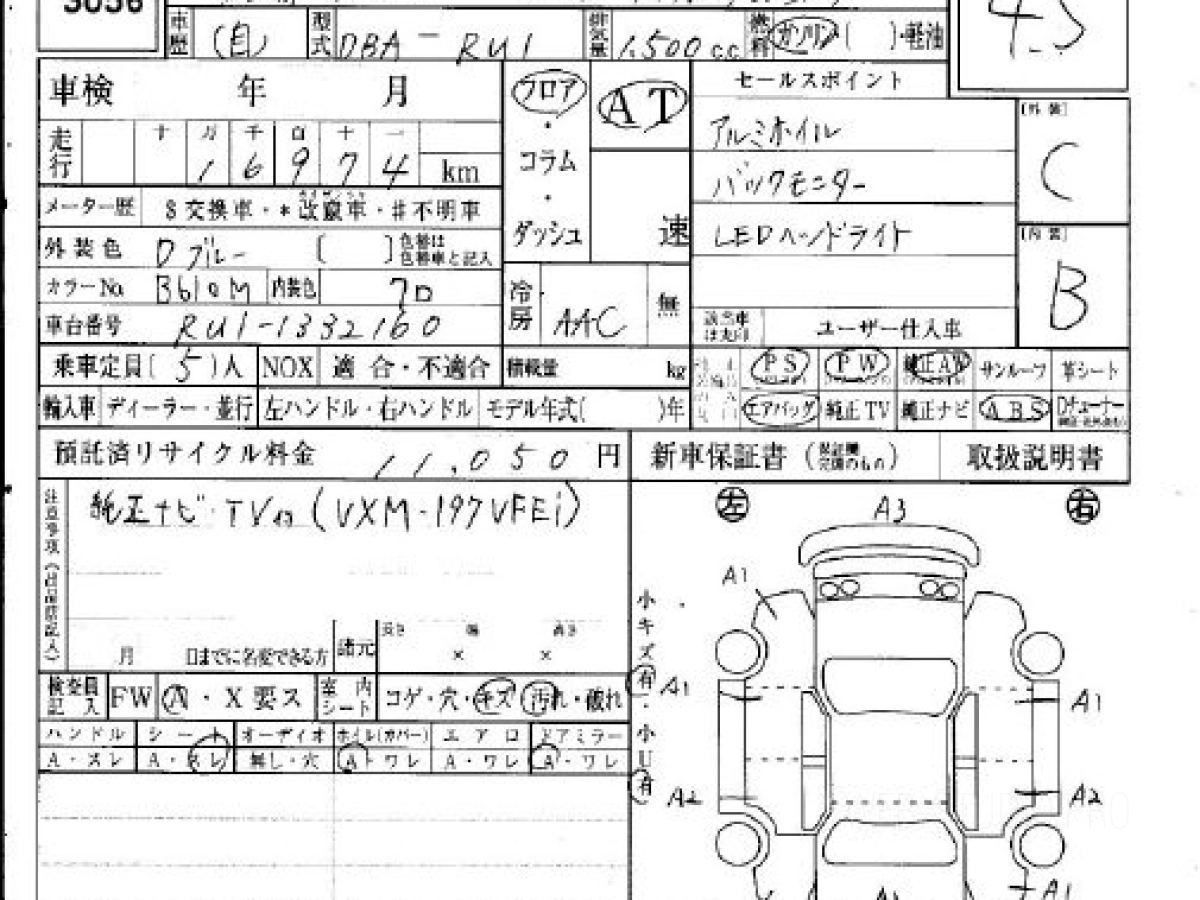 3056
車歴 (自) 型式 DBA-RU1 排気量 1,500cc 燃料 ガソリン( )・軽油
車検 年 月 フロア AT セールスポイント
走行 十 万 千 百 十 一 ・ アルミホイル [外装]
1 6 9 7 4 km コラム バックモニター C
メーター歴 $交換車・*改竄車・#不明車 ・
外装色 Dブルー [ ] 色替は色替車と記入 ダッシュ 速 LEDヘッドライト [内装]
カラーNo. B610M 内装色 クロ 冷房 AAC 無 B
車台番号 RU1-1332160 該当車は丸印 ユーザー仕入車
乗車定員(5)人 NOX 適合・不適合 積載量 kg PS PW 純正AW サンルーフ 革シート
輸入車 ディーラー・並行 左ハンドル・右ハンドル モデル年式( )年 エアバッグ 純正TV 純正ナビ ABS Dチューナー
預託済リサイクル料金 11,050円 新車保証書 (保証書交換のもの) 取扱説明書
注意事項
純正ナビ・TV付(VXM-197VFEi)
左 A3 右
A1
月 日までに名変できる方 諸元 長さ 幅 高さ
× ×
小キズ 有・小U 有
A1 A1
検査員記入 FW A・X要ス 室内シート コゲ・穴・キズ 汚れ・破れ
ハンドル シート オーディオ ホイル(カバー) エアロ ドアミラー
A・スレ A・スレ 無し・穴 A・ワレ A・ワレ A・ワレ
A2 A2
A1